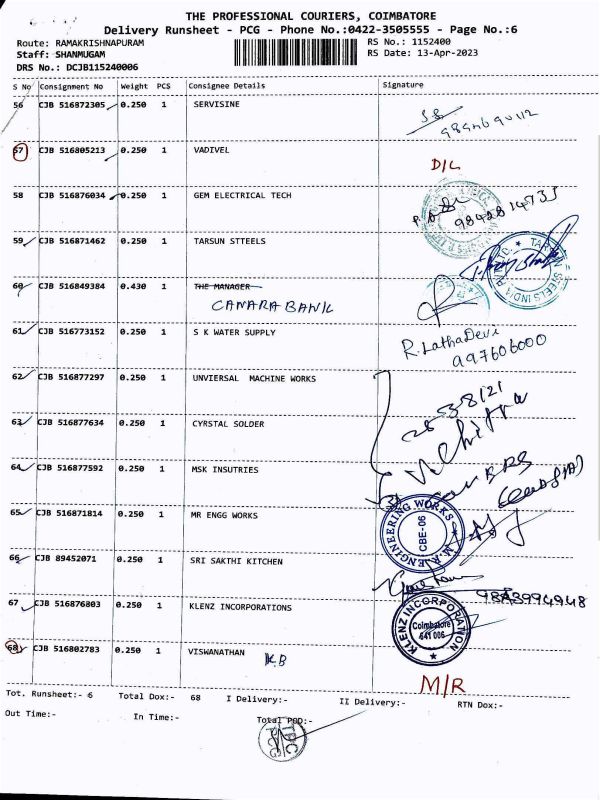 THE PROFESSIONAL COURIERS, COIMBATORE
Delivery Runsheet - PCG - Phone No.:0422-3505555 - Page No.:6
Route: RAMAKRISHNAPURAM RS No.: 1152400
Staff: SHANMUGAM RS Date: 13-Apr-2023
DRS No.: DCJB115240006
S No Consignment No Weight PCS Consignee Details Signature
56 CJB 516872305 0.250 1 SERVISINE
57 CJB 516805213 0.250 1 VADIVEL D/L
58 CJB 516876034 0.250 1 GEM ELECTRICAL TECH
59 CJB 516871462 0.250 1 TARSUN STTEELS
60 CJB 516849384 0.430 1 THE MANAGER
CANARA BANK
61 CJB 516773152 0.250 1 S K WATER SUPPLY
R. Latha Devi
997606000
62 CJB 516877297 0.250 1 UNVIERSAL MACHINE WORKS
63 CJB 516877634 0.250 1 CYRSTAL SOLDER
64 CJB 516877592 0.250 1 MSK INSUTRIES
65 CJB 516871814 0.250 1 MR ENGG WORKS
M.A. ENGINEERING WORKS
CBE-06
66 CJB 89452071 0.250 1 SRI SAKTHI KITCHEN
67 CJB 516876803 0.250 1 KLENZ INCORPORATIONS
KLENZ INCORPORATION
Coimbatore
641 006
68 CJB 516802783 0.250 1 VISWANATHAN
M/R
Tot. Runsheet:- 6 Total Dox:- 68 I Delivery:- II Delivery:- RTN Dox:-
Out Time:- In Time:- Total POD:-
TPC